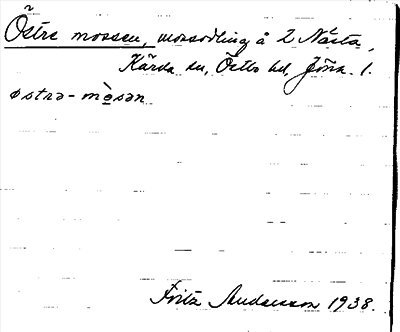 Östre mossen, mossodling å 2 Nästa,
Kärda sn, Östbo hd, Jönk. l.
østrə-mòsən
Fritz Andersson 1938.